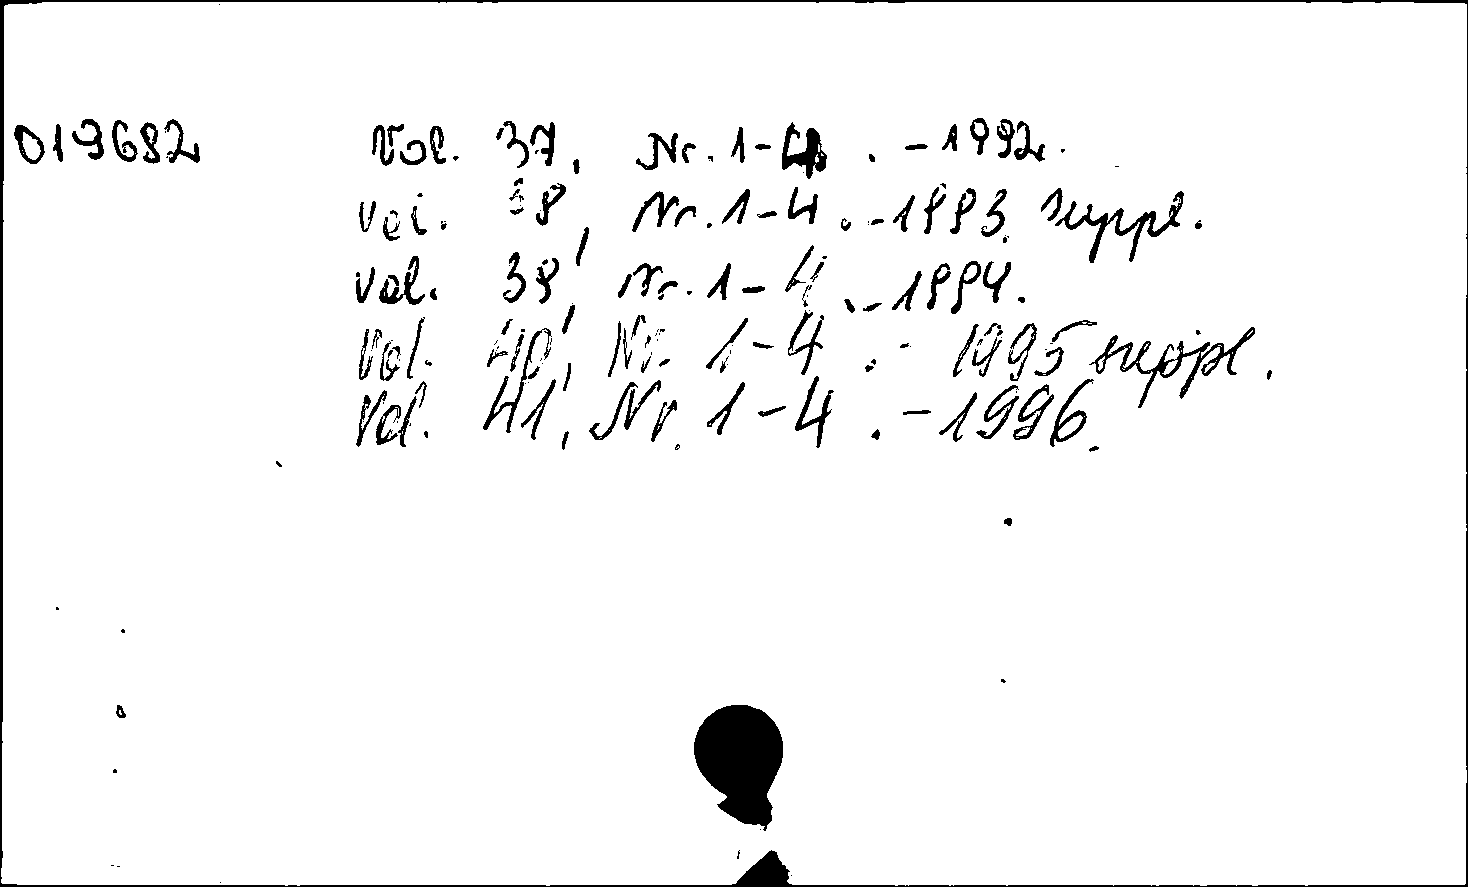 019682 Vol. 37, Nr. 1-4 . - 1992.
Vol. 38, Nr. 1-4 . - 1993. suppl.
Vol. 39, Nr. 1-4 . - 1994.
Vol. 40, Nr. 1-4 . - 1995 suppl.
Vol. 41, Nr. 1-4 . - 1996.